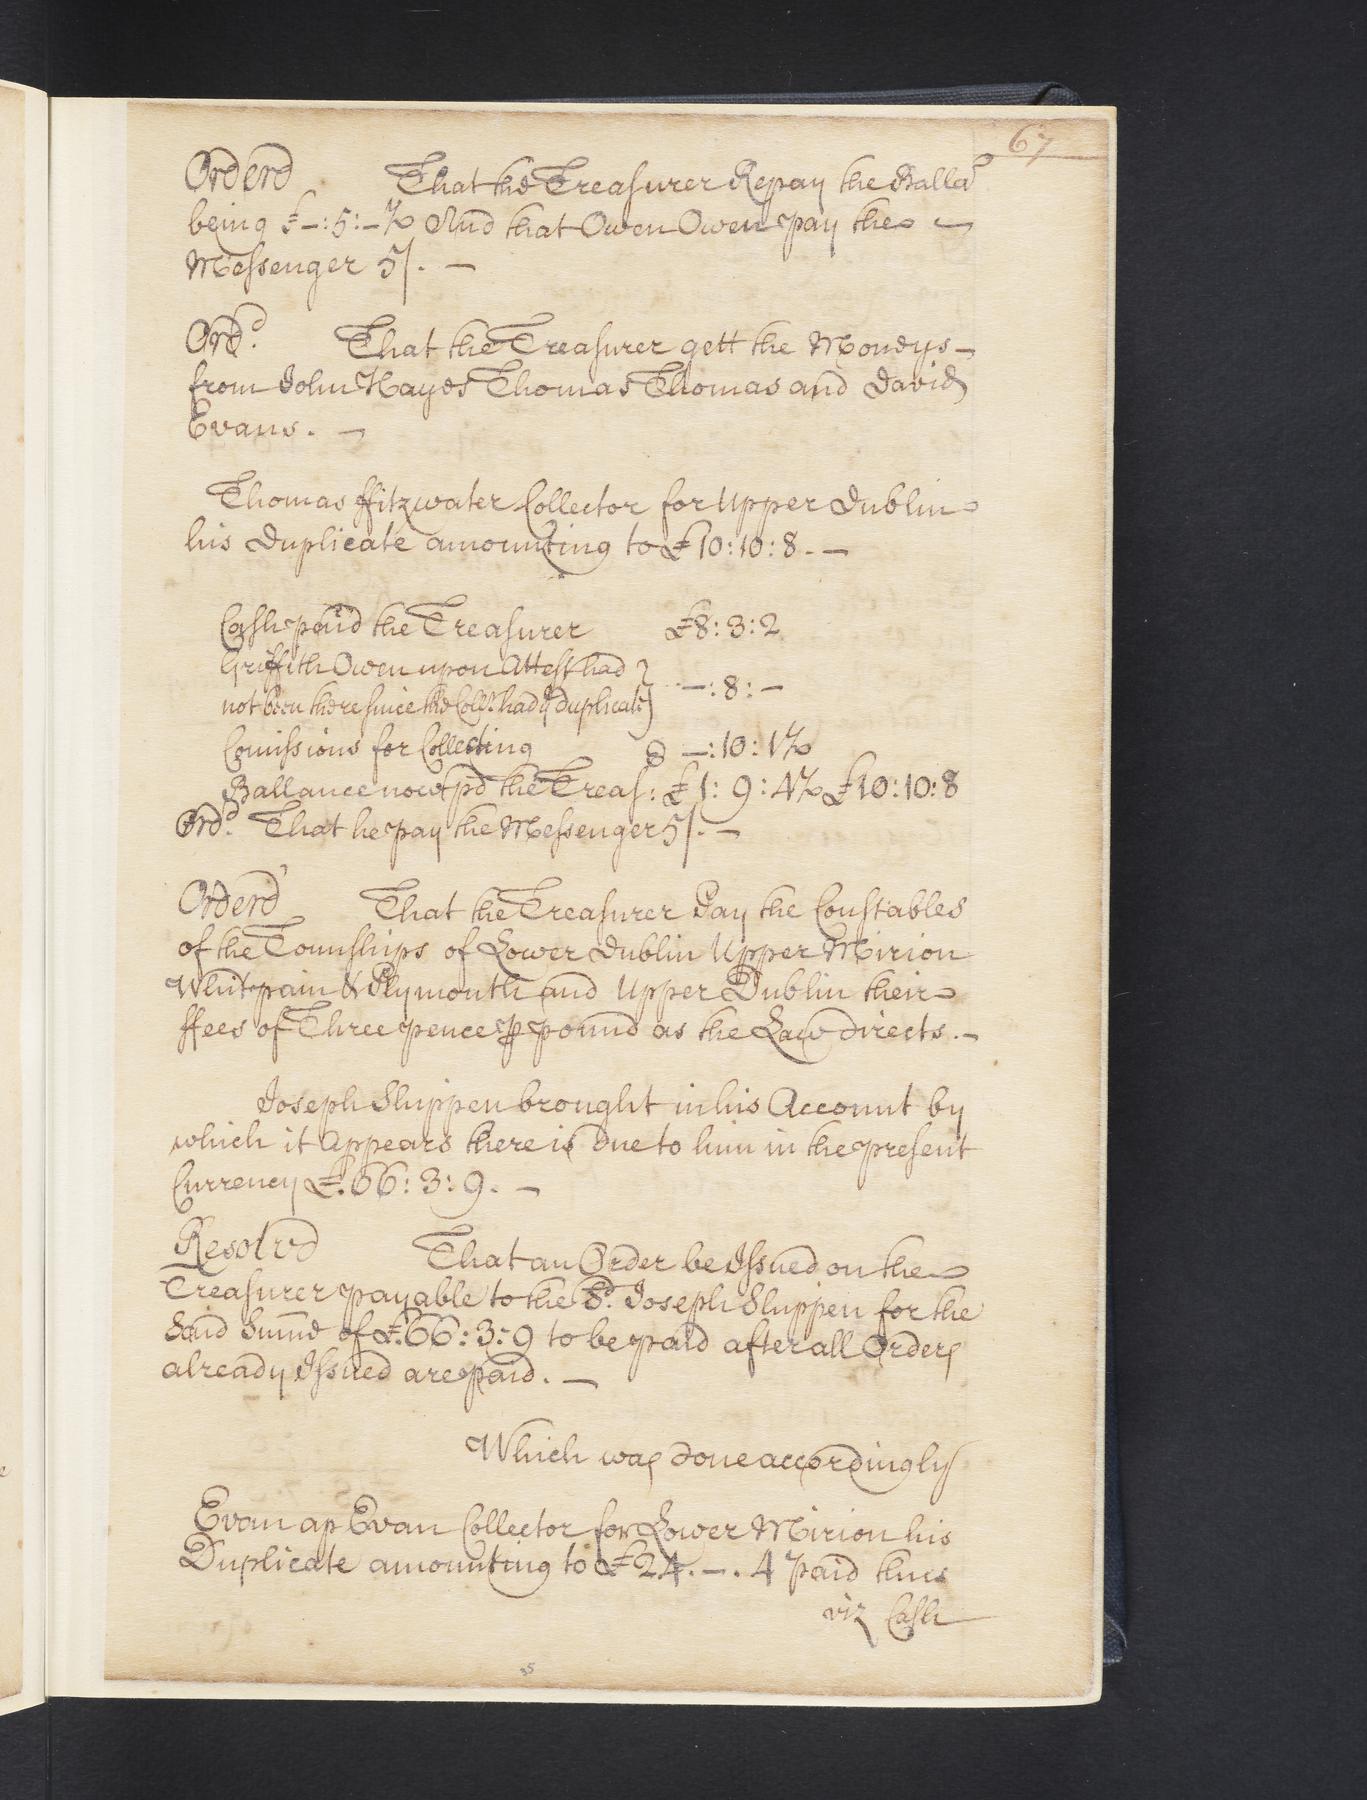 67
Orderd That the Treasurer Repay the Balla
being £–:5:–½ And that Owen Owen pay the
Messenger 5/. —
Ord.d That the Treasurer gett the Moneys –
from John Hayes Thomas Thomas and David
Evans. —
Thomas ffitzwater Collector for Upper Dublin
his Duplicate amounting to £10:10:8. —
Cash paid the Treasurer £8:3:2
Griffith Owen upon Attest had
not been there since the Coll.r had ye duplicate } –:8:–
Comissions for Collecting –:10:1½
Ballance now pd the Treas: £1:9:4½ £10:10:8
Ord.d That he pay the Messenger 5/. —
Orderd That the Treasurer Pay the Constables
of the Townships of Lower Dublin Upper Mirion
Whitpain & Plymouth and Upper Dublin their
ffees of Three pence ꝑ pound as the Law directs. –
Joseph Shippen brought in his Account by
which it Appears there is due to him in the present
Currency £.66:3:9. —
Resolvd That an Order be Issued on the
Treasurer payable to the S.d Joseph Shippen for the
Said Summe of £.66:3:9 to be paid after all Orders
already Issued are paid. —
Which was done accordingly
Evan ap Evan Collector for Lower Mirion his
Duplicate amounting to £24.–.4 paid thus
viz Cash
35